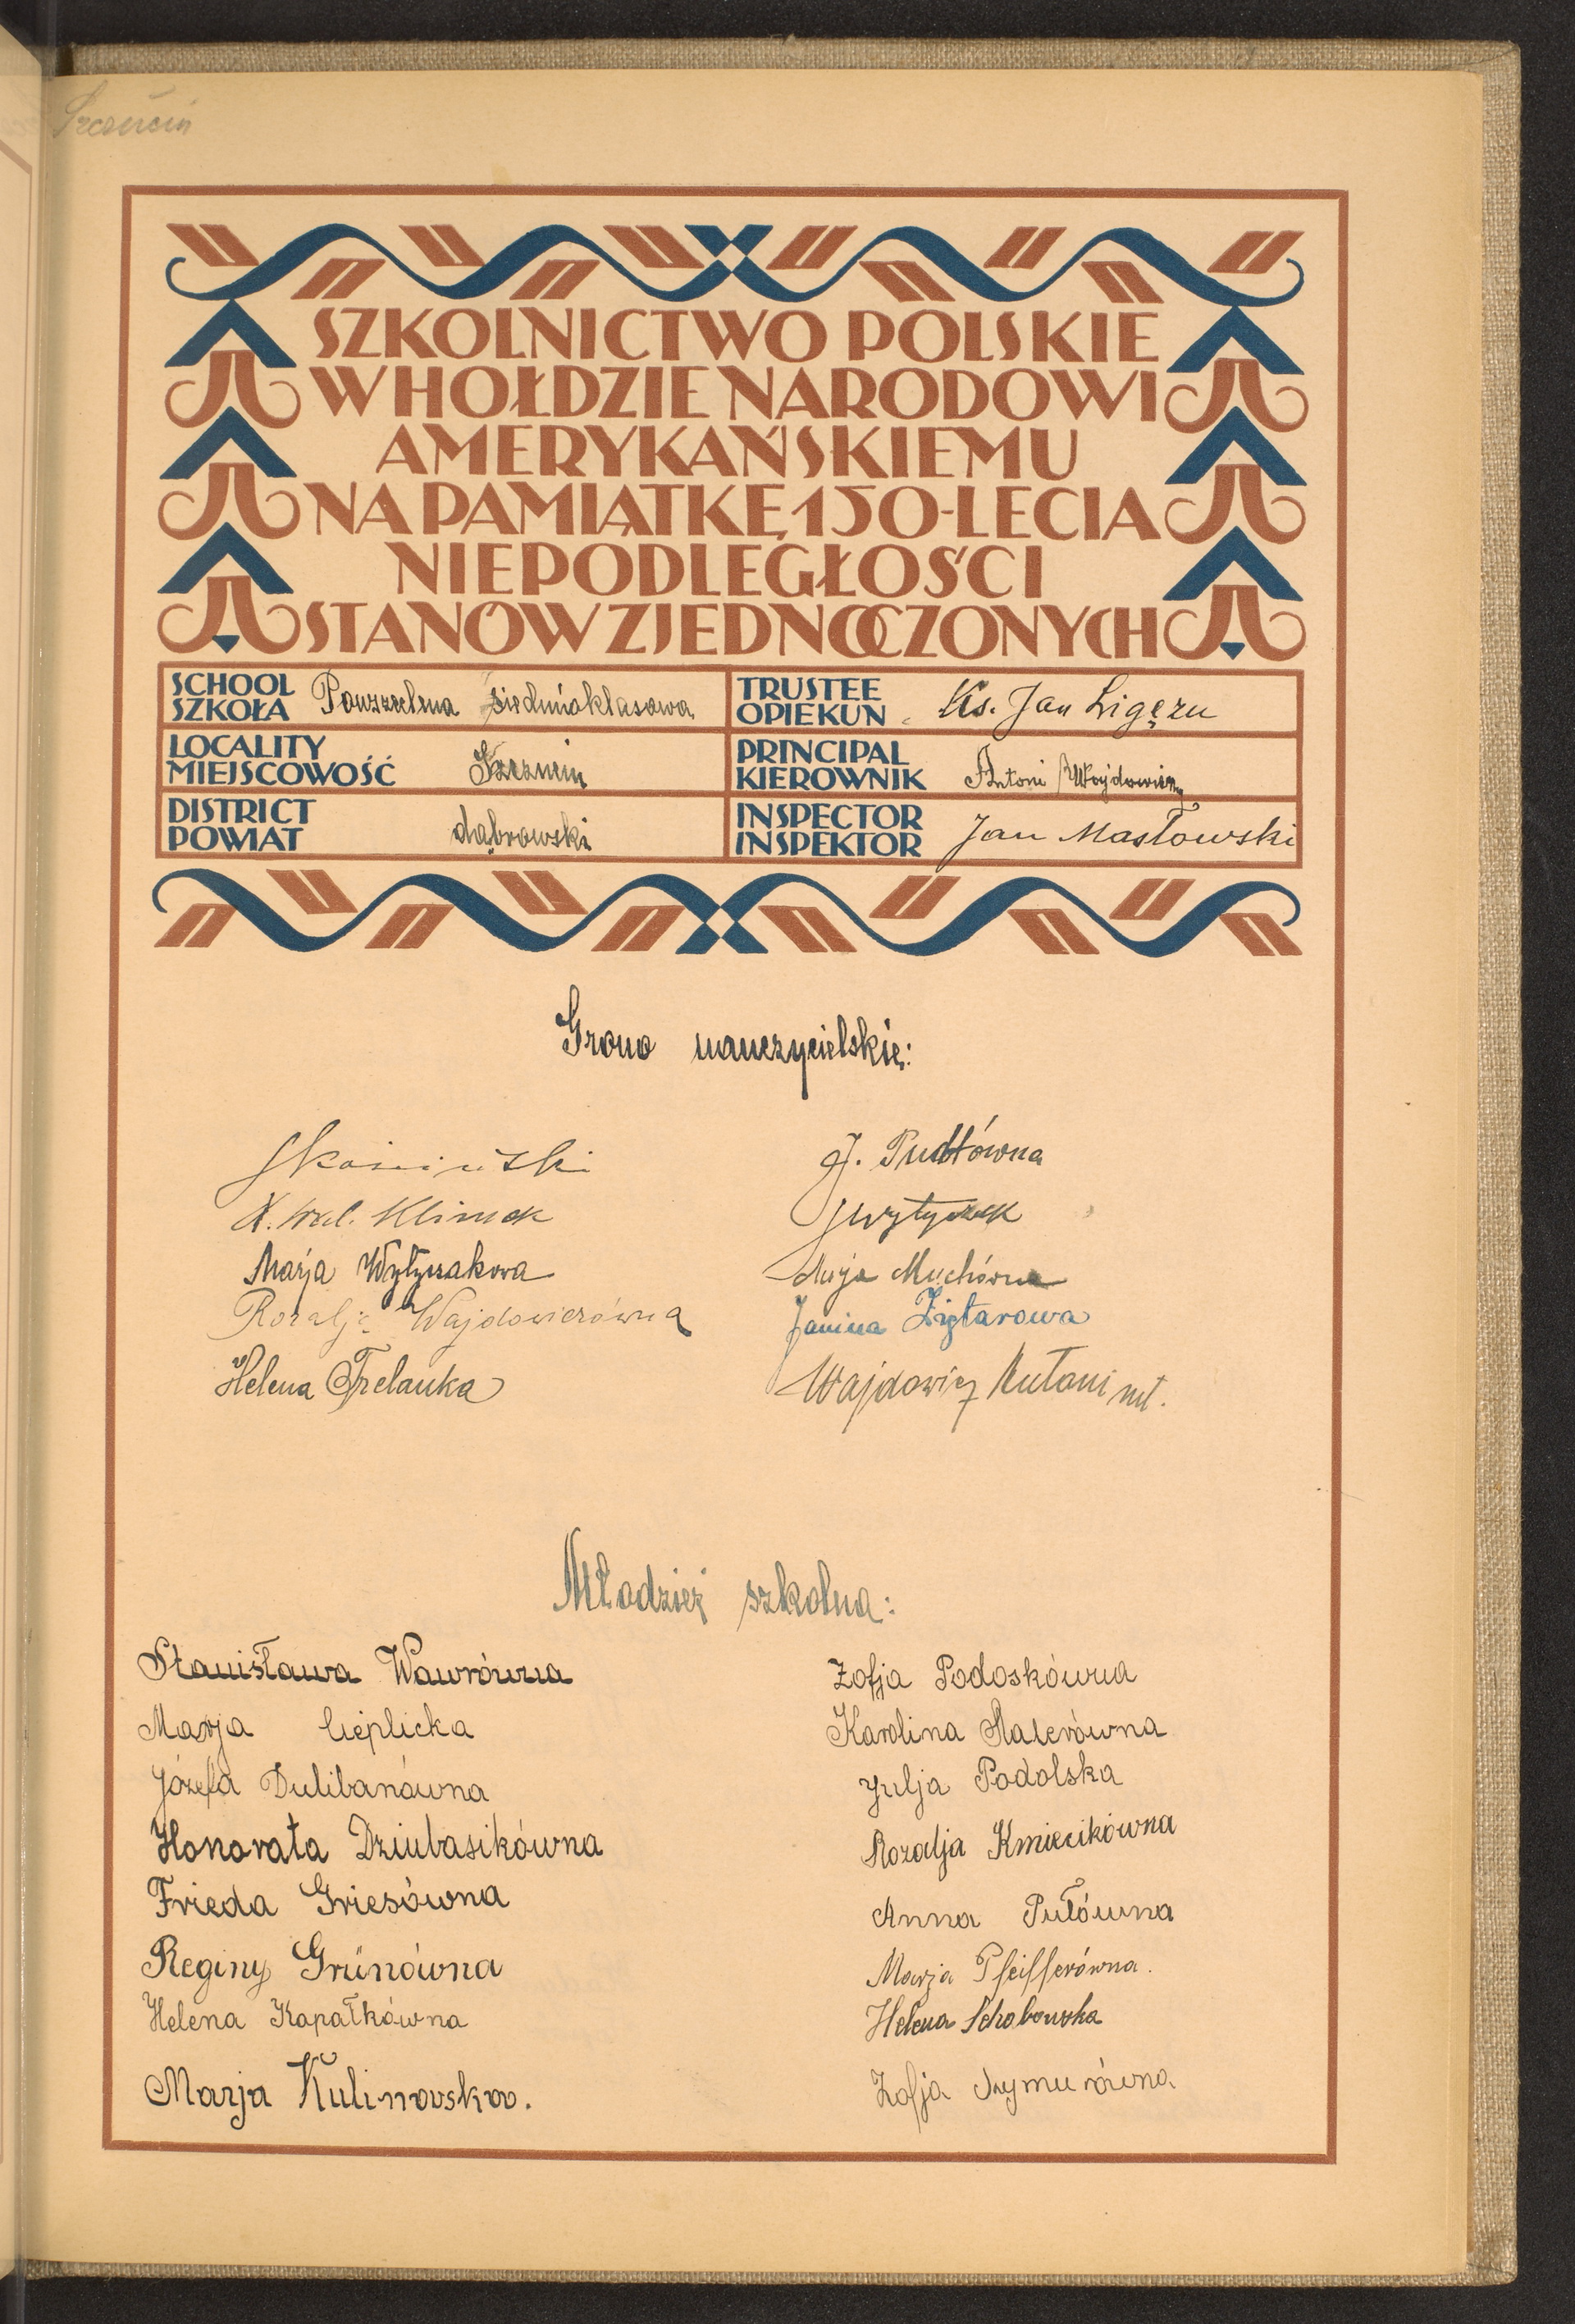 Szczucin
SZKOLNICTWO POLSKIE
W HOŁDZIE NARODOWI
AMERYKAŃSKIEMU
NA PAMIĄTKĘ 150-LECIA
NIEPODLEGŁOŚCI
STANÓW ZJEDNOCZONYCH
SCHOOL
SZKOŁA Powszechna siedmioklasowa
TRUSTEE
OPIEKUN Ks. Jan Ligęzu
LOCALITY
MIEJSCOWOŚĆ Szczucin
PRINCIPAL
KIEROWNIK Antoni Wajdowicz
DISTRICT
POWIAT dąbrowski
INSPECTOR
INSPEKTOR Jan Masłowski
Grono nauczycielskie:
J. Pudłówna
X. Wal. Klimek
JWytyczak
Marja Wytyczakowa
Marja Muchówna
Rozalja Wajdowiczówna
Janina Ziętarowa
Helena Trelanka
Wajdowicz Antoni mł.
Młodzież szkolna:
Stanisława Wawrówna
Zofja Podoskówna
Marja Cieplicka
Karolina
Józefa Dulibanówna
Julja Podolska
Honorata Dziubasikówna
Rozalja Kmiecikówna
Frieda Griesówna
Anna Putówna
Reginy Grünówna
Marja Pfeifferówna.
Helena Kapałkówna
Helena Schabowska
Marja Kulinowska.
Zofja